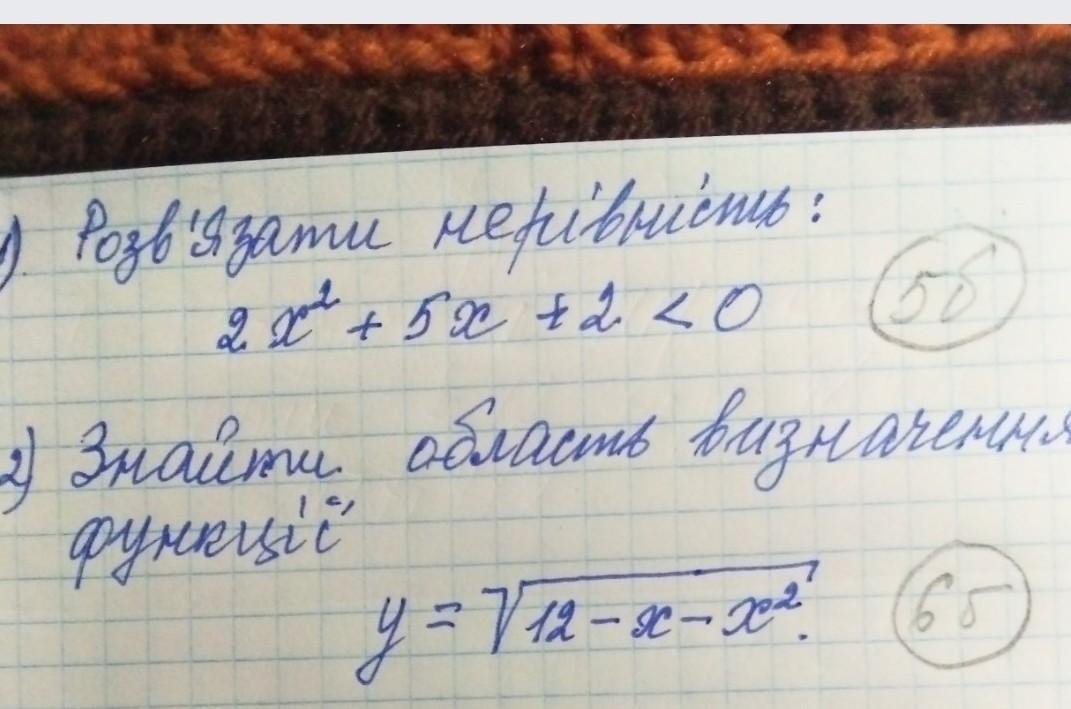 1) Розв'язати нерівність:
2x² + 5x + 2 < 0
5б
2) Знайти область визначення
функції
y = √12 - x - x².
6б